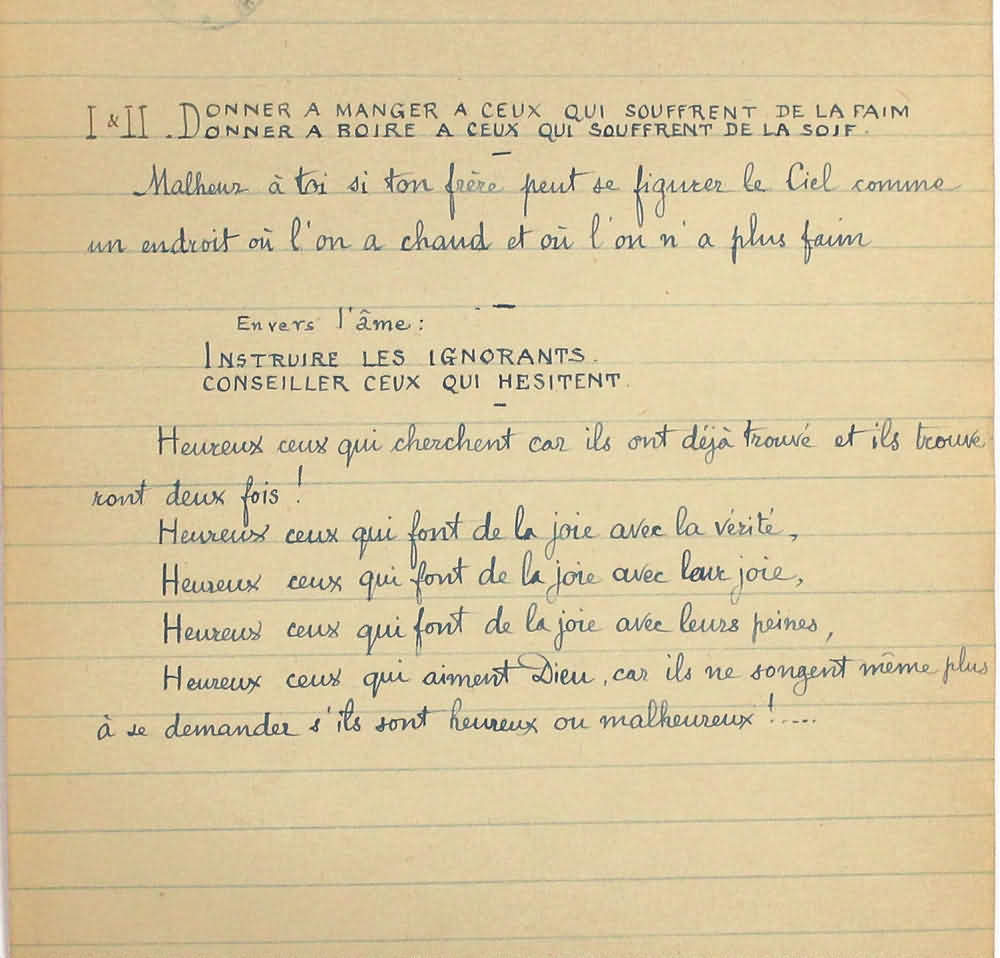 I & II . DONNER A MANGER A CEUX QUI SOUFFRENT DE LA FAIM
DONNER A BOIRE A CEUX QUI SOUFFRENT DE LA SOIF.
Malheur à toi si ton frère peut se figurer le Ciel comme
un endroit où l'on a chaud et où l'on n'a plus faim
Envers l'âme :
INSTRUIRE LES IGNORANTS.
CONSEILLER CEUX QUI HESITENT.
Heureux ceux qui cherchent car ils ont déjà trouvé et ils trouve-
ront deux fois !
Heureux ceux qui font de la joie avec la vérité,
Heureux ceux qui font de la joie avec leur joie,
Heureux ceux qui font de la joie avec leurs peines,
Heureux ceux qui aiment Dieu, car ils ne songent même plus
à se demander s'ils sont heureux ou malheureux !.....